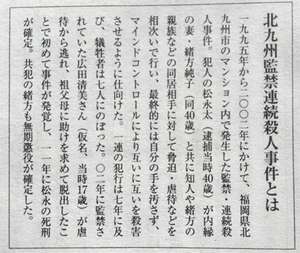 北九州監禁連続殺人事件とは
一九九五年から二〇〇二年にかけて、福岡県北
九州市のマンション内で発生した監禁・連続殺
人事件。犯人の松永太（逮捕当時40歳）が内縁
の妻・緒方純子（同40歳）と共に知人や緒方の
親族などの同居相手に対して脅迫・虐待などを
相次いで行い、最終的には自分の手を汚さず、
マインドコントロールにより互いに互いを殺害
させるように仕向けた。一連の犯行は七年に及
び、犠牲者は七人にのぼった。〇二年に監禁さ
れていた広田清美さん（仮名、当時17歳）が虐
待から逃れ、祖父母に助けを求めて脱出したこ
とで初めて事件が発覚し、一一年に松永の死刑
が確定。共犯の緒方も無期懲役が確定した。